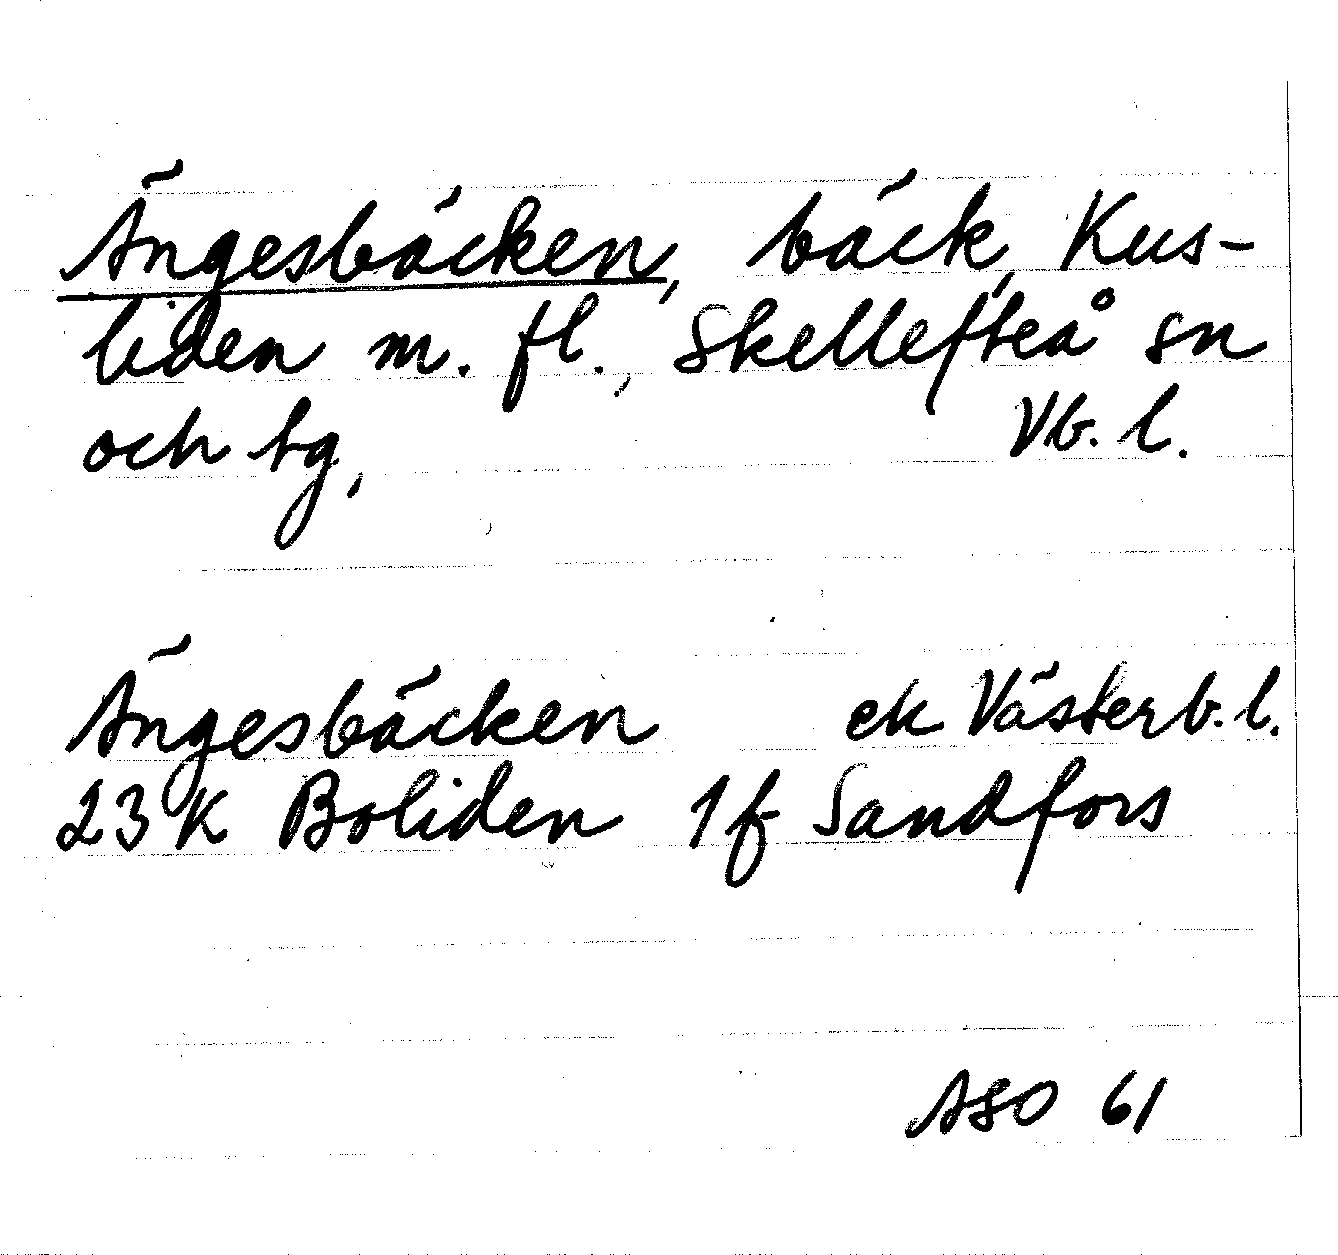 Ängesbäcken, bäck, Kus-
liden m. fl., Skellefteå sn
och tg, Vb. l.
Ängesbäcken ek Västerb. l.
23 K Boliden 1f Sandfors
ASO 61